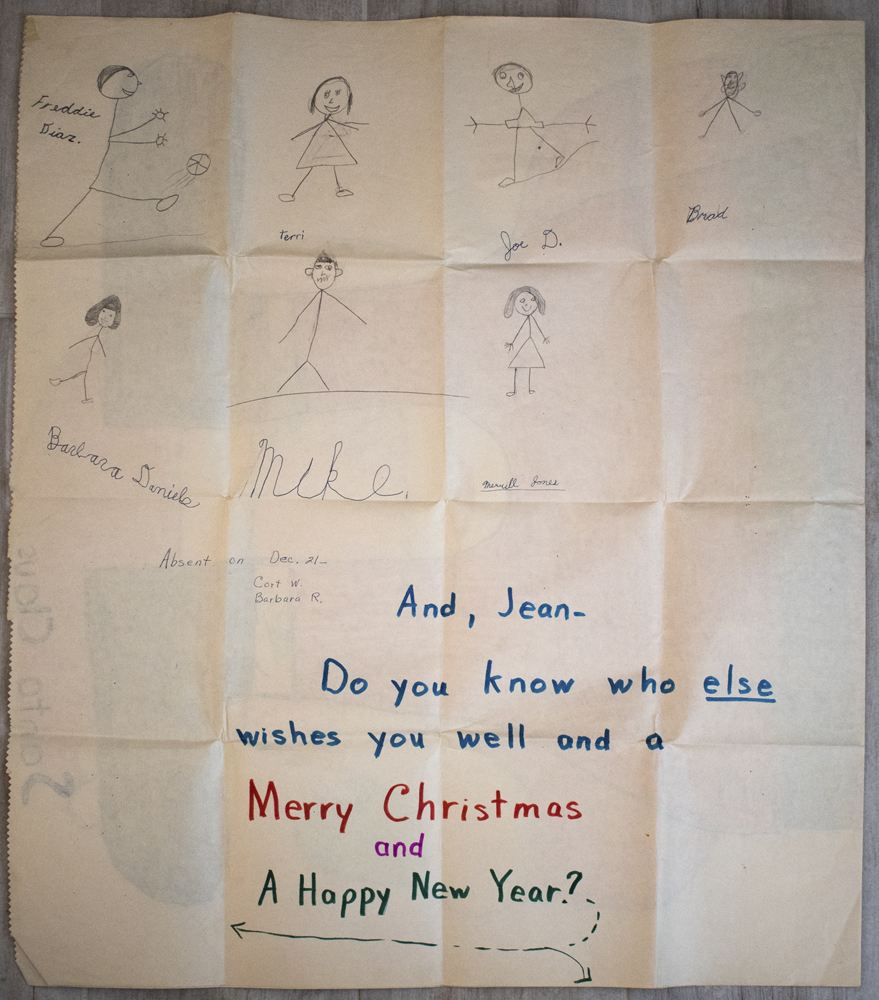 Freddie
Diaz.
terri
Joe D.
Brad
Barbara Daniels
Mike.
Merrill Jones
Absent on Dec. 21-
Cort W.
Barbara R.
And, Jean-
Do you know who else
wishes you well and a
Merry Christmas
and
A Happy New Year?
Santa Claus